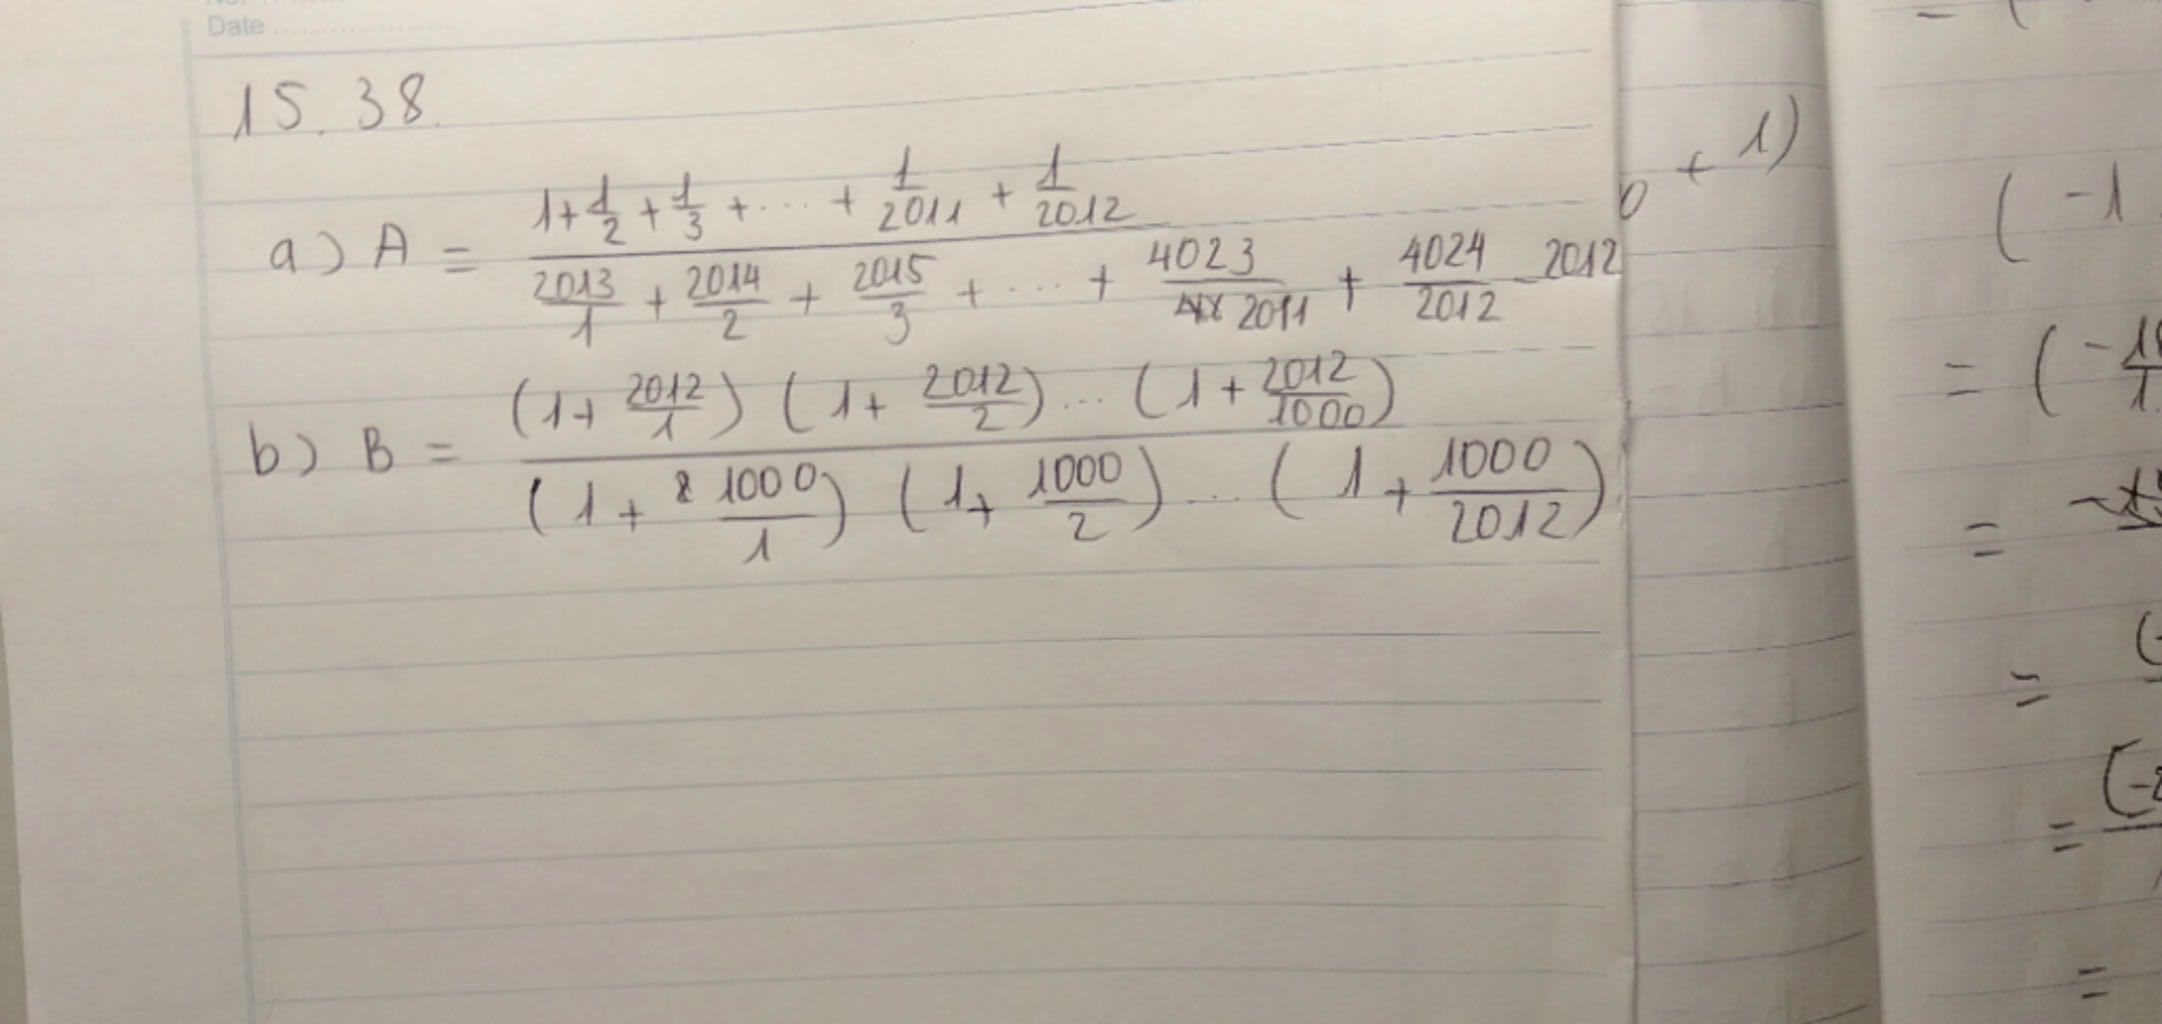 No.
Date
15.38.
a) A = (1 + 1/2 + 1/3 + ... + 1/2011 + 1/2012) / (2013/1 + 2014/2 + 2015/3 + ... + 4023/2011 + 4024/2012 - 2012)
b) B = ((1 + 2012/1) (1 + 2012/2) ... (1 + 2012/1000)) / ((1 + 1000/1) (1 + 1000/2) ... (1 + 1000/2012))
+ 1)
(-1
= (-
=
=
=
=